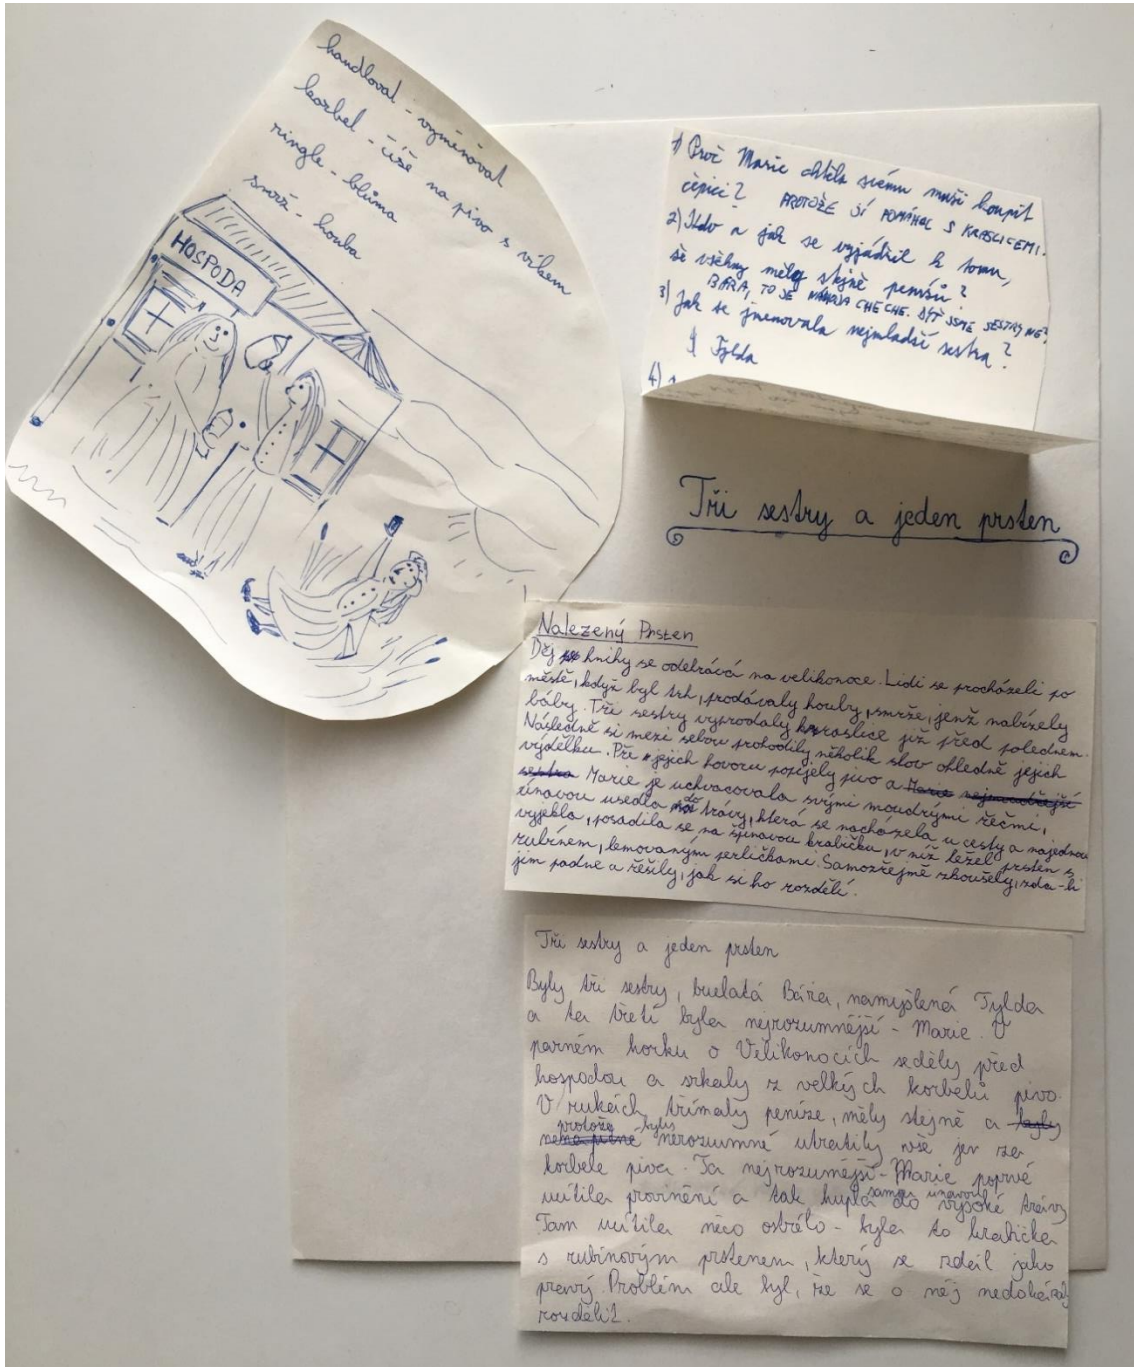 handloval - vyměňoval
korbel - číše na pivo s víkem
ringle - blůma
smrž - houba
HOSPODA
1) Proč Marie chtěla svému muži koupit
čepici? PROTOŽE JÍ POMÁHAL S KRASLICEMI.
2) Kdo a jak se vyjádřil k tomu,
že všechny měly stejně peněz?
BÁRA, TO JE CHECHE. DYŤ JSME SESTRY NE?
3) Jak se jmenovala nejmladší sestra?
Tylda
4)
Tři sestry a jeden prsten
Nalezený Prsten
Děj knihy se odehrává na velikonoce. Lidi se procházeli po
městě, když byl trh, prodávaly houby, smrže, jenž nabízely
báby. Tři sestry vyprodaly kraslice již před polednem.
Následně si mezi sebou prohodily několik slov ohledně jejich
výdělku. Při jejich hovoru popíjely pivo a Marie nejmoudřejší
sestra Marie je uchvacovala svými moudrými řečmi,
únavou usedla do trávy, která se nacházela u cesty a najednou
vyjekla, posadila se na špinavou krabičku, v níž ležel prsten s
rubínem, lemovaným perličkami. Samozřejmě zkoušely, zda-li
jim padne a řešily, jak si ho rozdělí.
Tři sestry a jeden prsten
Byly tři sestry, buclatá Bára, namyšlená Tylda
a ta třetí byla nejrozumnější - Marie. V
parném horku o Velikonocích seděly před
hospodou a srkaly z velkých korbelů pivo.
V rukách třímaly peníze, měly stejně a byly
protože byly
nerozumné utratily vše jen za
korbele piva. Ta nejrozumější - Marie poprvé
ucítila provinění a tak hupla samou únavou do vysoké trávy
Tam ucítila něco ostrého - byla to krabička
s rubínovým prstenem, který se zdál jako
pravý. Problém ale byl, že se o něj nedokázaly
rozdělit.